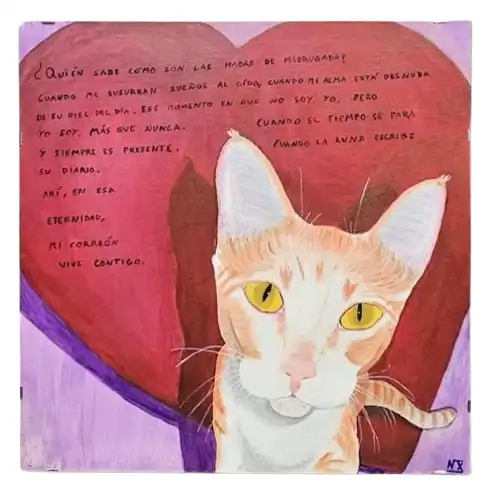 ¿QUIÉN SABE COMO SON LAS HADAS DE MADRUGADA?
CUANDO ME SUSURRAN SUEÑOS AL OÍDO, CUANDO MI ALMA ESTÁ DESNUDA
DE SU PIEL DEL DÍA. ESE MOMENTO EN QUE NO SOY YO, PERO
YO SOY, MÁS QUE NUNCA. CUANDO EL TIEMPO SE PARA
Y SIEMPRE ES PRESENTE. CUANDO LA LUNA ESCRIBE
SU DIARIO.
AHÍ, EN ESA
ETERNIDAD,
MI CORAZÓN
VIVE CONTIGO.